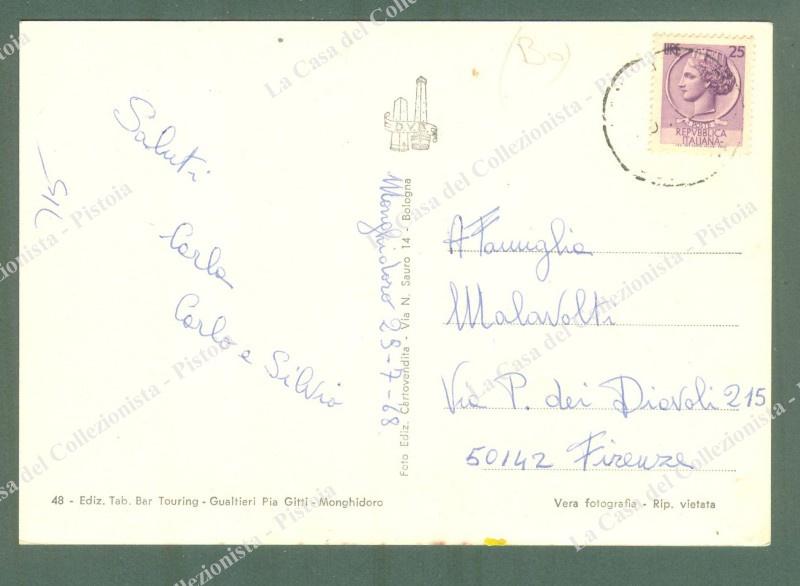 (Bo)
LIRE 25
POSTE
REPVBBLICA
ITALIANA
D.V.
Saluti
Carla
Carlo e Silvio
715
Monghidoro 28-7-68
Foto Ediz. Cartovendita - Via N. Sauro 14 - Bologna
A Famiglia
Malavolti
Via P. dei Diavoli 215
50142 Firenze
48 - Ediz. Tab. Bar Touring - Gualtieri Pia Gitti - Monghidoro
Vera fotografia - Rip. vietata
La Casa del Collezionista - Pistoia